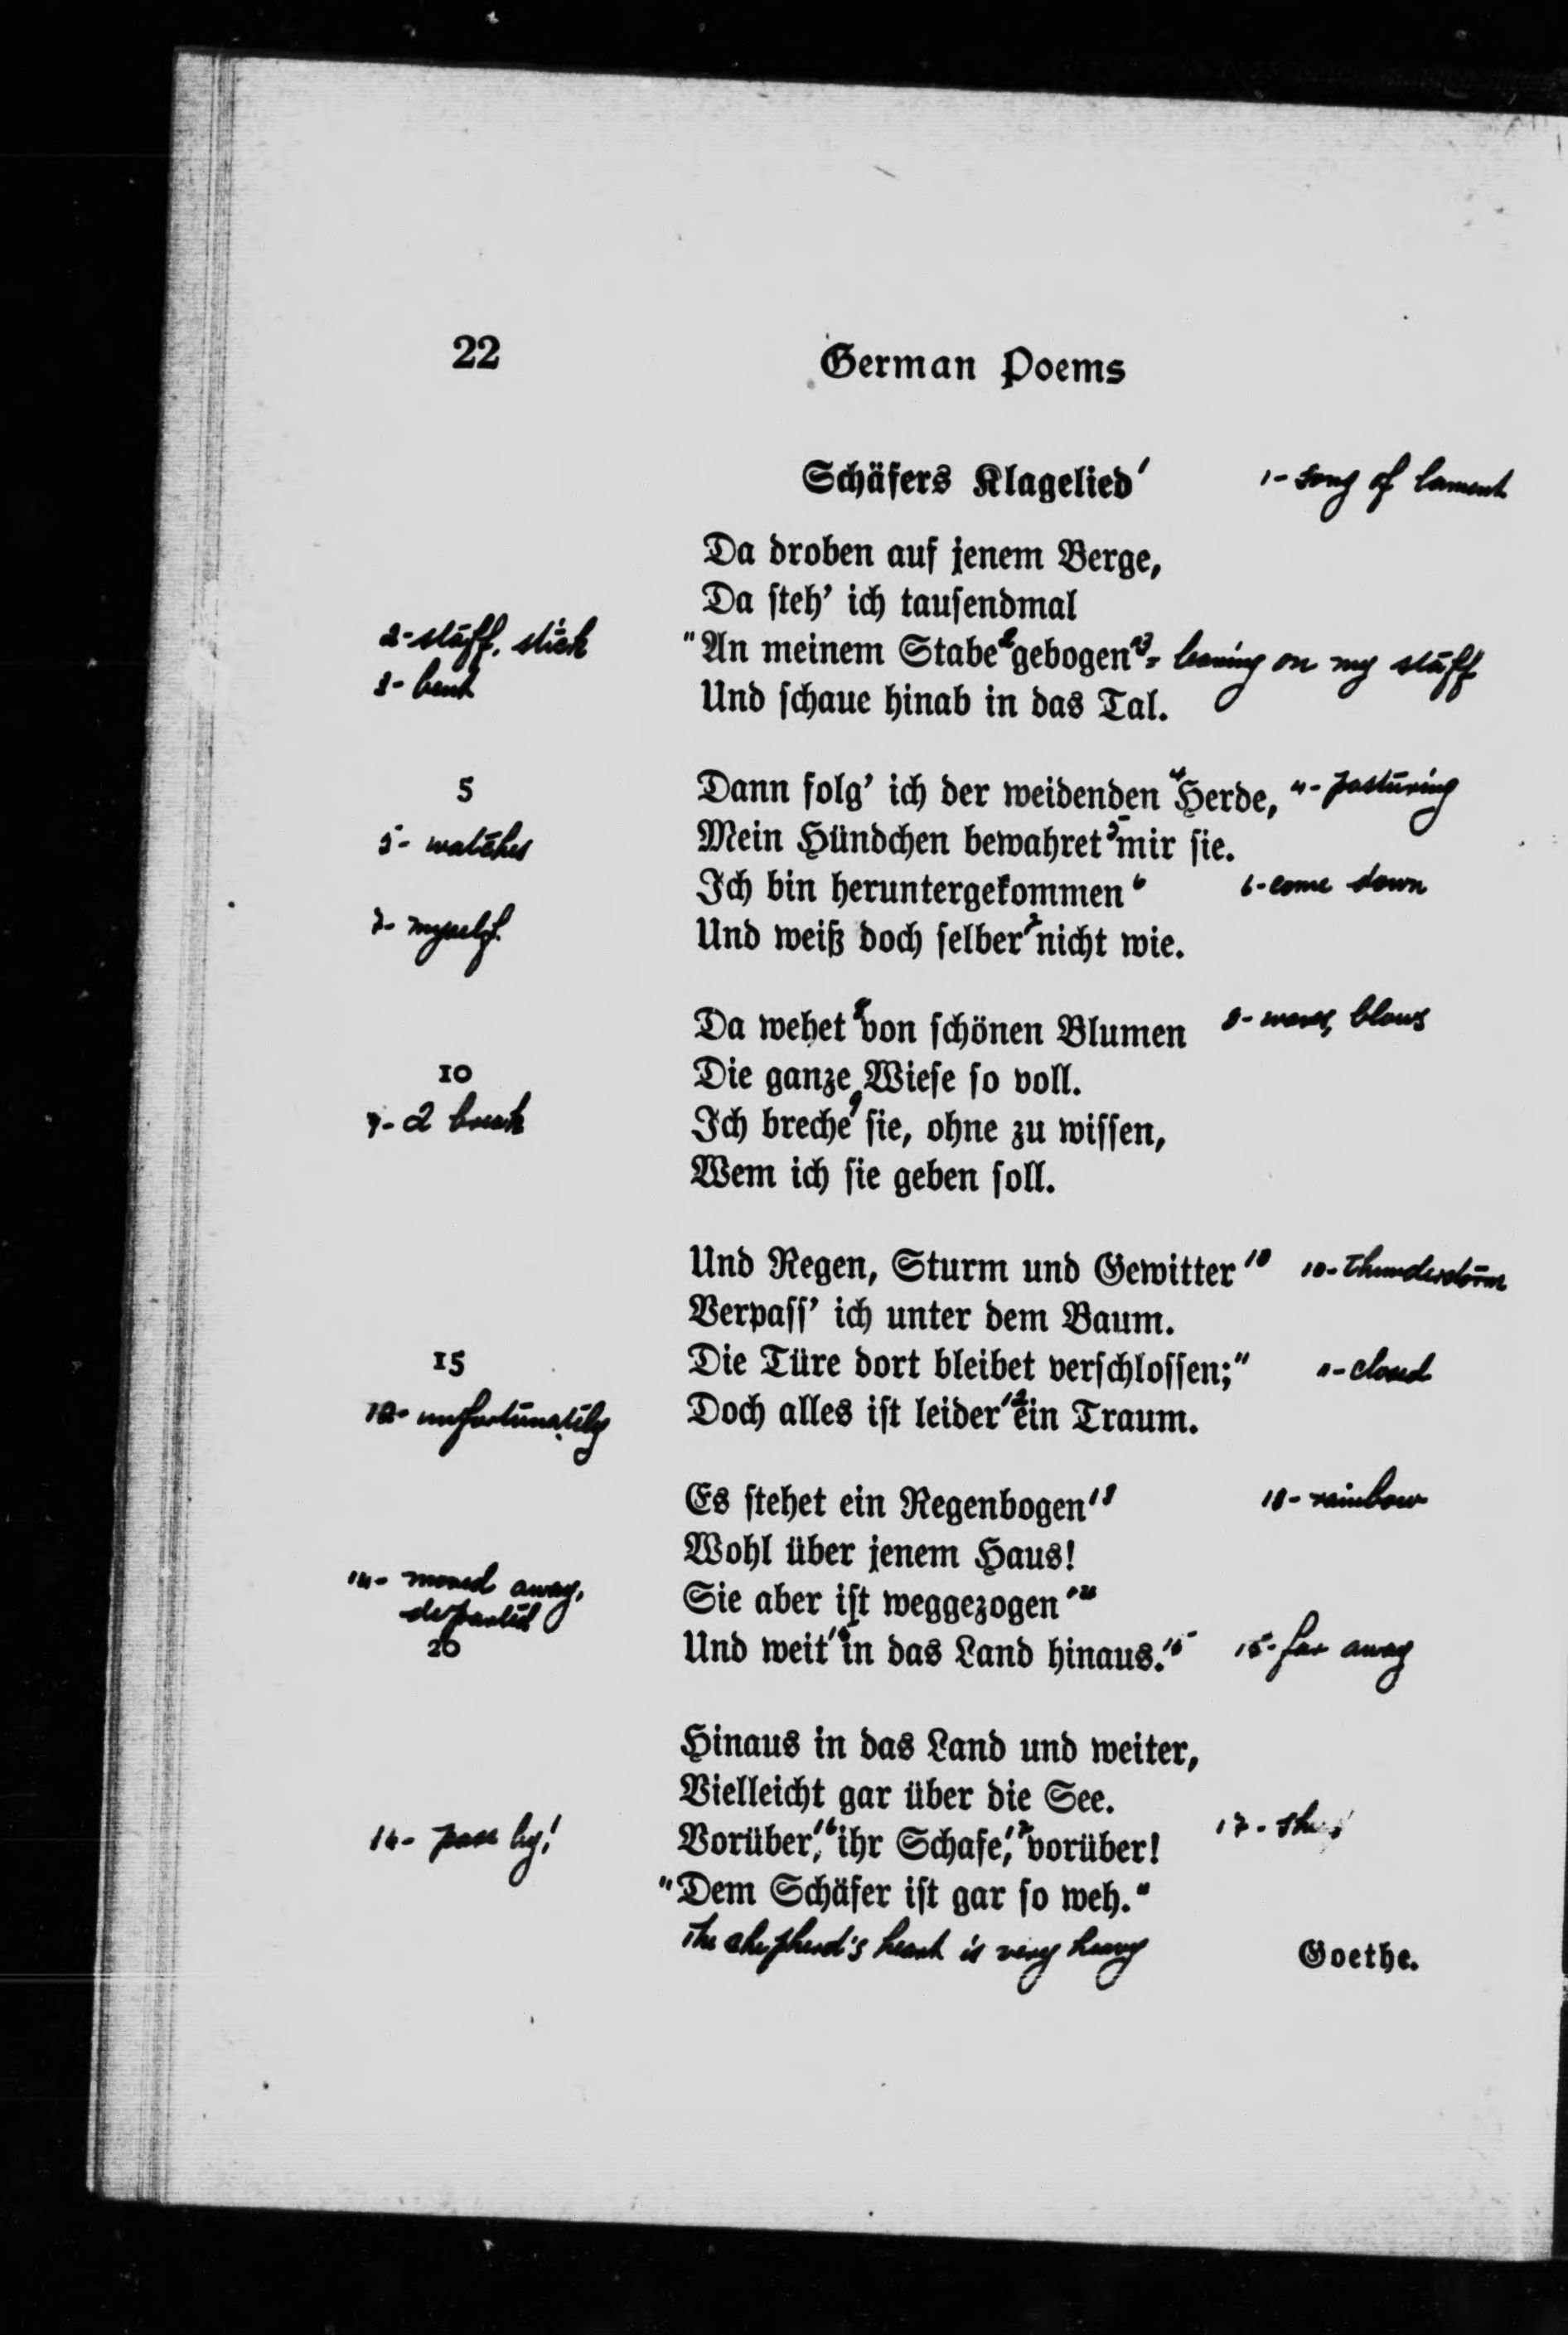 22 German Poems
Schäfers Klagelied¹ 1- song of lament
Da droben auf jenem Berge,
Da steh' ich tausendmal
2- staff, stick
"An meinem Stabe² gebogen"³ - leaning on my staff
3- bent
Und schaue hinab in das Tal.
5 Dann folg' ich der weidenden⁴ Herde, 4- pasturing
5- watches Mein Hündchen bewahret⁵ mir sie.
Ich bin heruntergekommen⁶ 6- come down
7- myself Und weiß doch selber⁷ nicht wie.
Da wehet⁸ von schönen Blumen 8- waves, blows
10 Die ganze Wiese so voll.
9- I break Ich breche⁹ sie, ohne zu wissen,
Wem ich sie geben soll.
Und Regen, Sturm und Gewitter¹⁰ 10- thunderstorm
Verpass' ich unter dem Baum.
15 Die Türe dort bleibet verschlossen;¹¹ 11- closed
12- unfortunately Doch alles ist leider¹² ein Traum.
Es stehet ein Regenbogen¹³ 13- rainbow
Wohl über jenem Haus!
14- moved away, departed Sie aber ist weggezogen¹⁴
20 Und weit¹⁵ in das Land hinaus.¹⁵ 15- far away
Hinaus in das Land und weiter,
Vielleicht gar über die See.
16- pass by! Vorüber,¹⁶ ihr Schafe,¹⁷ vorüber! 17-
"Dem Schäfer ist gar so weh."
The shepherd's heart is very heavy
Goethe.